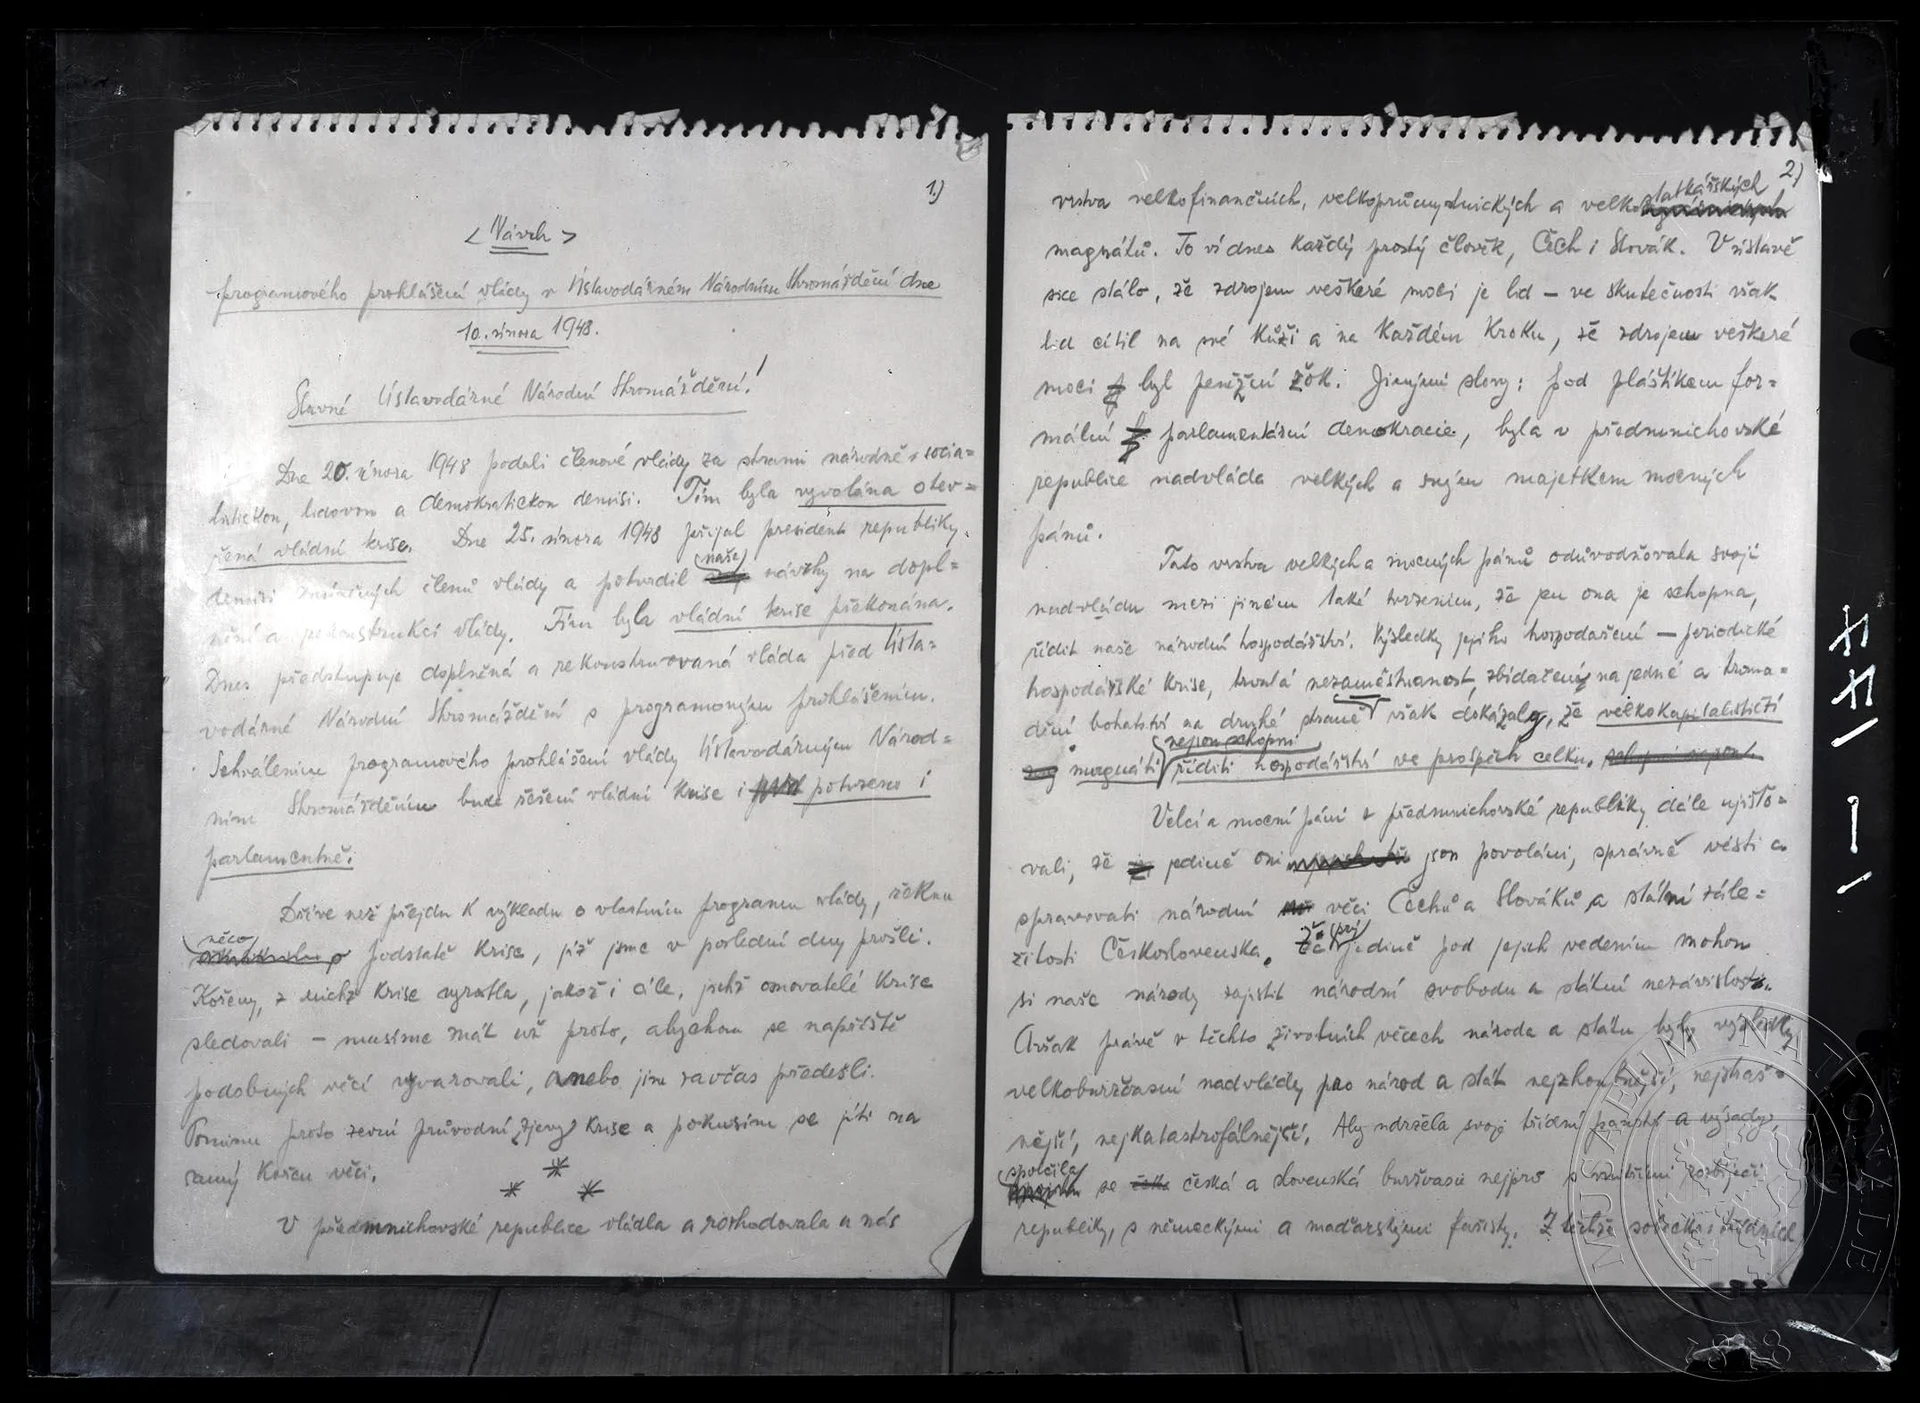 1.)
< Návrh >
programového prohlášení vlády v Ústavodárném Národním Shromáždění dne
10. února 1948.
Slavné Ústavodárné Národní Shromáždění!
Dne 20. února 1948 podali členové vlády za stranu národně socia=
listickou, lidovou a demokratickou demisi. Tím byla vyvolána otev=
řená vládní krise. Dne 25. února 1948 přijal president republiky
demisi členů vlády a potvrdil naše návrhy na dopl=
nění a rekonstrukci vlády. Tím byla vládní krise překonána.
Dnes předstupuje doplněná a rekonstruovaná vláda před Ústa=
vodárné Národní Shromáždění s programovým prohlášením.
Schválením programového prohlášení vlády Ústavodárným Národ=
ním Shromážděním bude řešení vládní krise i potvrzeno i
parlamentně.
Dříve než přejdu k výkladu o vlastním programu vlády, řeknu
něco o podstatě krise, jíž jsme v poslední dny prošli.
Kořeny, z nichž krise vyrostla, jakož i cíle, jichž osnovatelé krise
sledovali – musíme znát už proto, abychom se napříště
podobných věcí vyvarovali, anebo jim zavčas předešli.
Pominu proto zevní průvodní zjevy krise a pokusím se jíti na
samý kořen věci.
* * *
V předmnichovské republice vládla a rozhodovala u nás
2)
vrstva velkofinančních, velkoprůmyslnických a velkostatkářských
magnátů. To ví dnes každý prostý člověk, Čech i Slovák. V ústavě
sice stálo, že zdrojem veškeré moci je lid – ve skutečnosti však
lid cítil na své kůži a na každém kroku, že zdrojem veškeré
moci byl peněžní žok. Jinými slovy: pod pláštíkem for=
mální parlamentární demokracie, byla v předmnichovské
republice nadvláda velkých a svým majetkem mocných
pánů.
Tato vrstva velkých a mocných pánů odůvodňovala svoji
nadvládu mezi jiném také tvrzením, že jen ona je schopna,
řídit naše národní hospodářství. Výsledky jejího hospodaření – periodické
hospodářské krise, trvalá nezaměstnanost, zbídačení na jedné a hroma=
dění bohatství na druhé straně však dokázaly, že velkokapitalističtí
magnáti nejsou schopni říditi hospodářství ve prospěch celku.
Velcí a mocní páni z předmnichovské republiky dále ujišťo=
vali, že jedině oni jsou povoláni, správně vésti a
spravovati národní věci Čechů a Slováků a státní zále=
žitosti Československa, že prý jedině pod jejich vedením mohou
si naše národy zajistit národní svobodu a státní nezávislost.
Avšak právě v těchto životních věcech národa a státu byly výsledky
velkoburžoasní nadvlády pro národ a stát nejzhoubnější, nejstraš=
nější, nejkatastrofálnější. Aby udržela svoje třídní panství a výsady,
spolčila se česká a slovenská buržoasie nejprv s vnitřními rozbíječi
republiky, s německými a maďarskými fašisty. Z těchže sobecko třídních
MUSAEUM NATIONALE